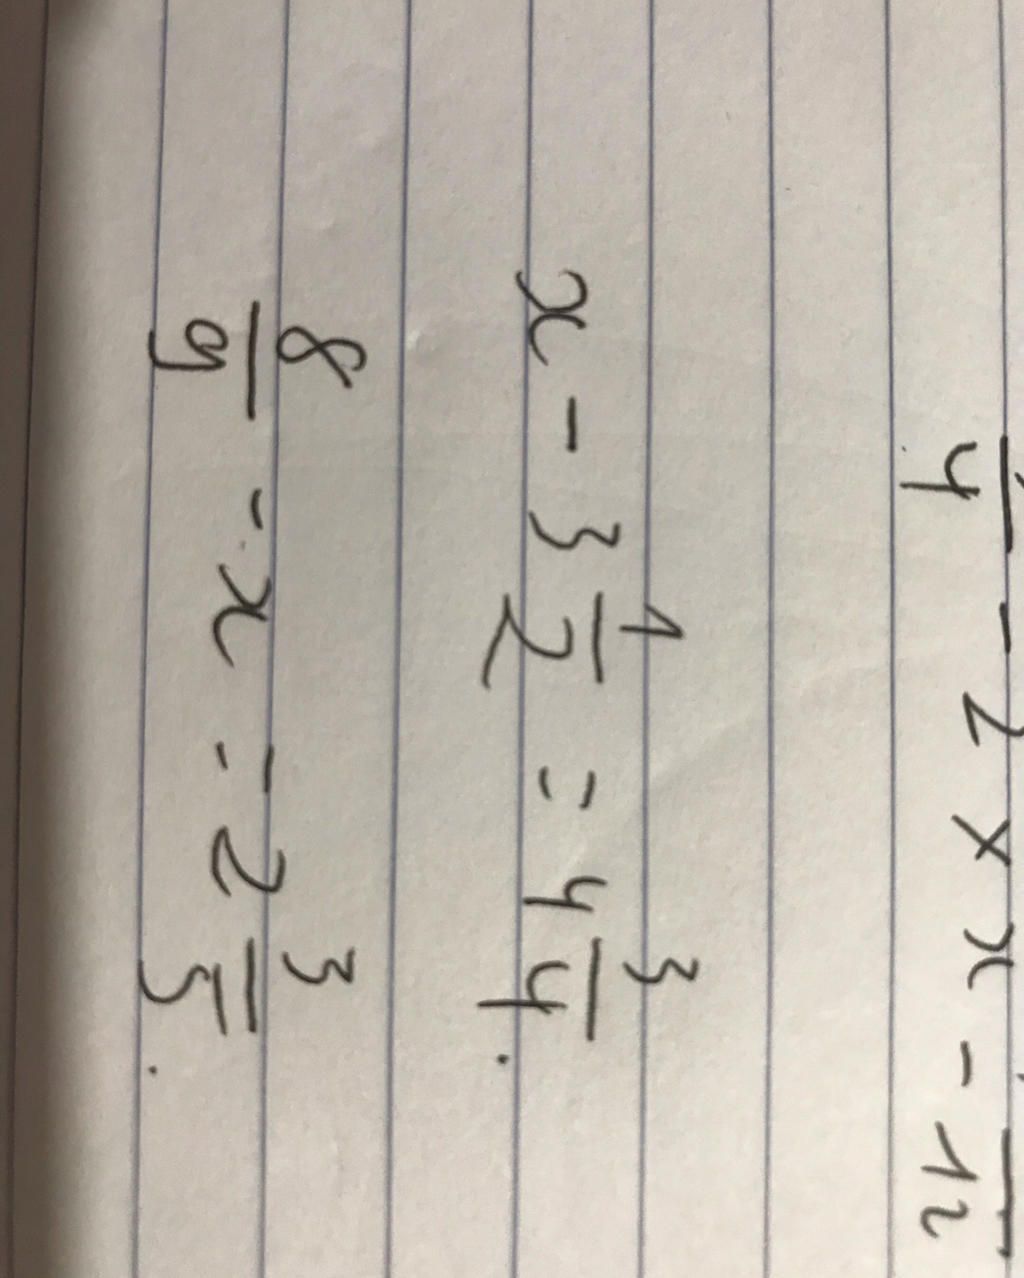 4 - 2 × x - 12
x - 3 1/2 = 4 3/4.
8/9 - x = 2 3/5.